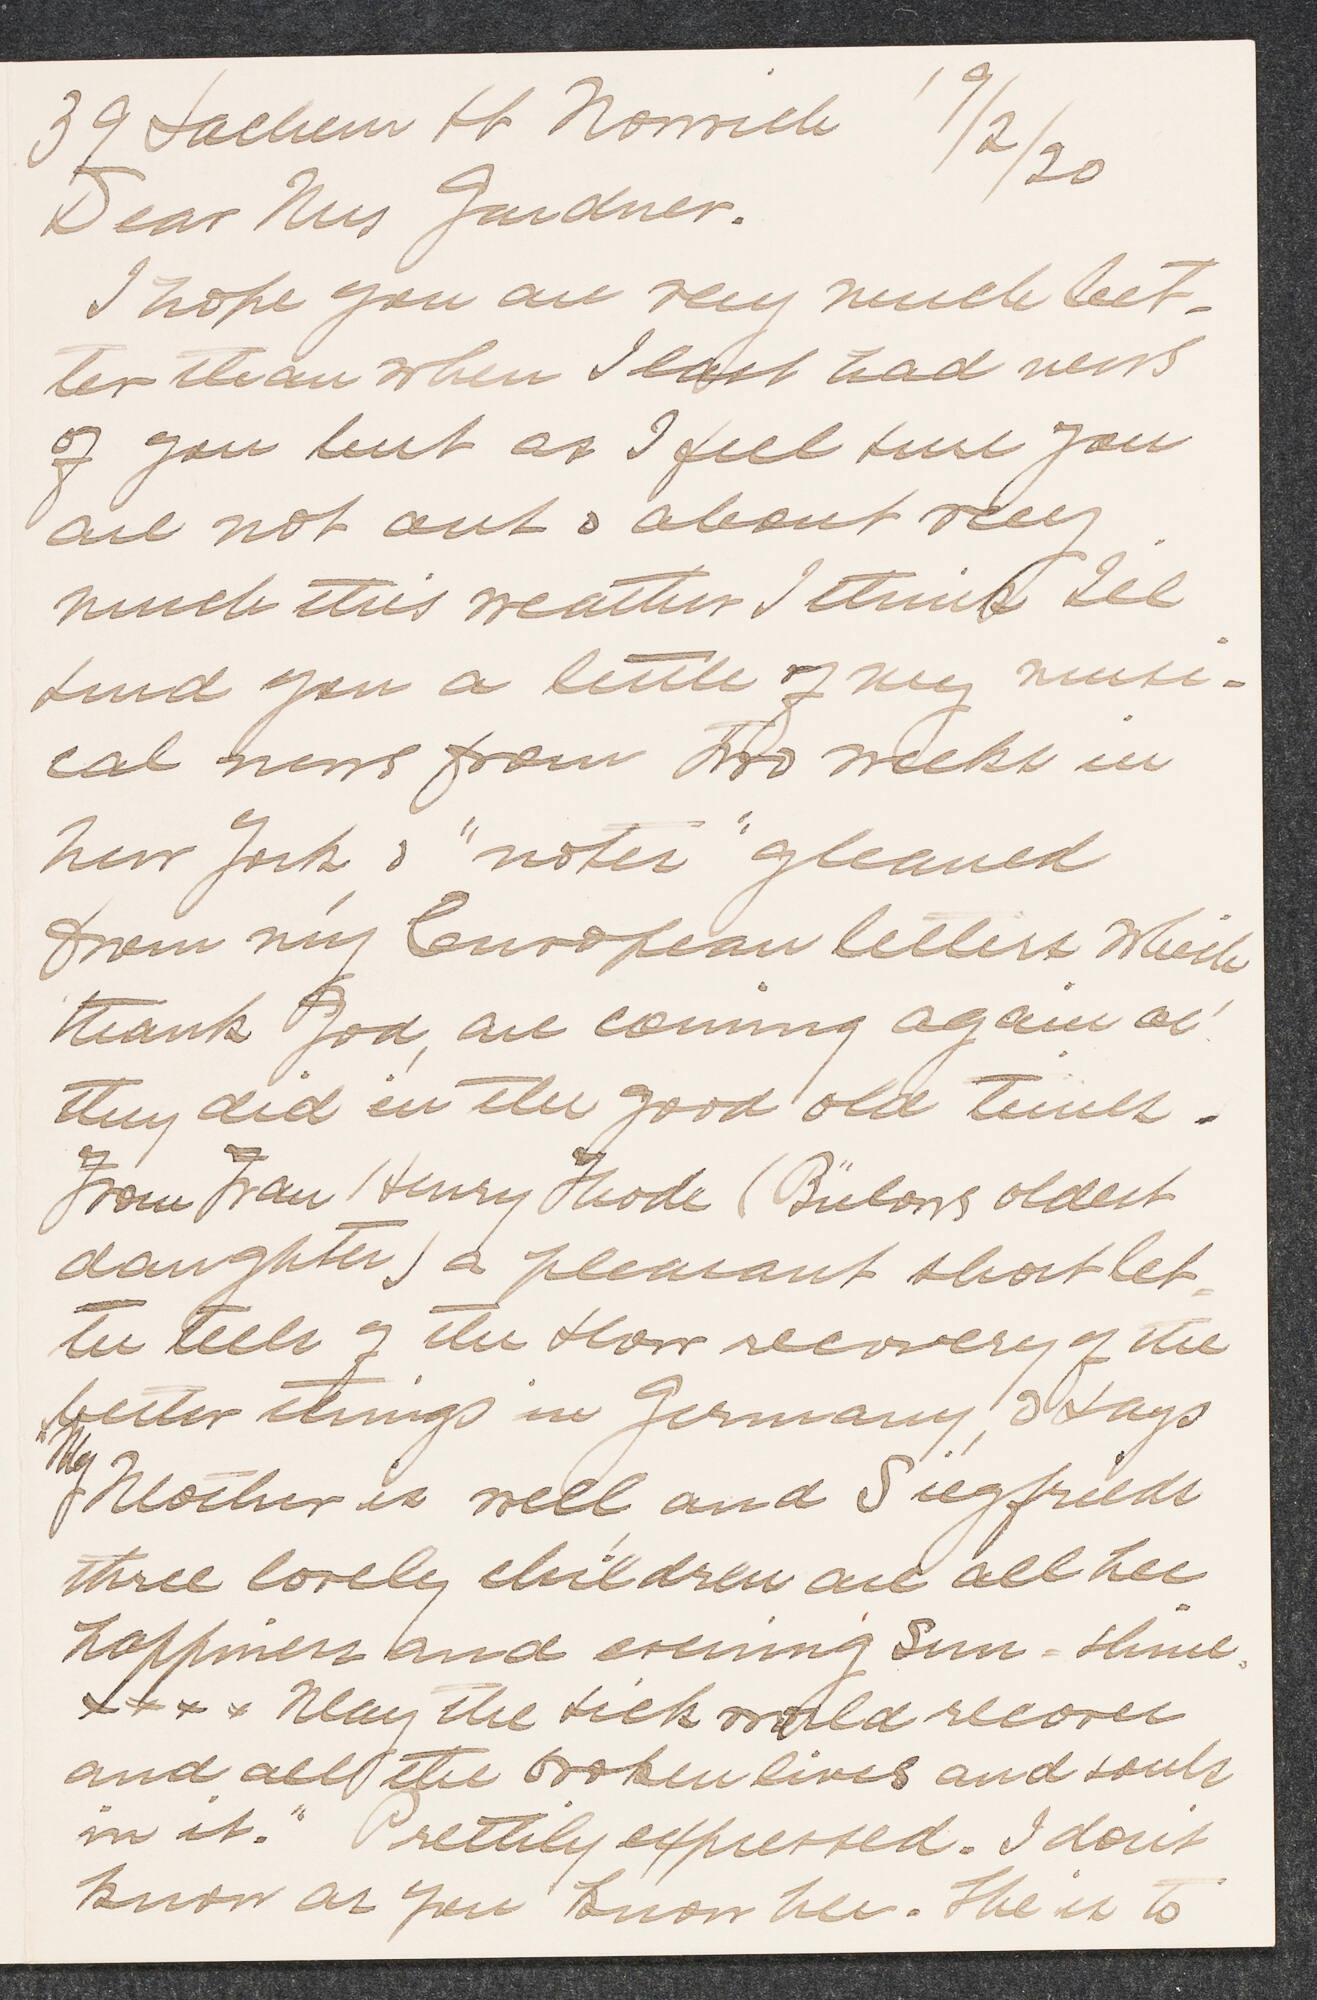 39 Sachem St Norwich 19/2/20
Dear Mrs Gardner.
I hope you are very much bet-
ter than when I last had news
of you but as I feel sure you
are not out & about very
much this weather I think I'll
send you a little of my musi-
cal news from two weeks in
New York & "notes" gleaned
from my European letters which
thank God, are coming again as
they did in the good old times.
From Frau Henry Thode (Bülows oldest
daughter) a pleasant short let-
ter tells of the slow recovery of the
better things in Germany, & says
"My Mother is well, and Siegfrieds
three lovely children are all her
happiness and evening Sun-shine.
x x x x May the sick world recover
and all the broken lives and souls
in it." Prettily expressed. I don't
know as you know her. She is to